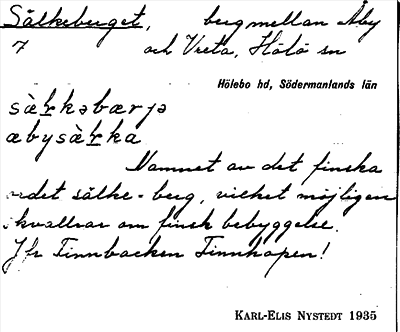 Sälkeberget, berg mellan Åby
7 och Vreta, Hölö sn
Hölebo hd, Södermanlands län
sàɽkəbærjə
æbysàɽka
Namnet av det finska
ordet sälke = berg, vilket möjligen
skvallrar om finsk bebyggelse.
Jfr Finnbacken Finnkopen!
KARL-ELIS NYSTEDT 1935